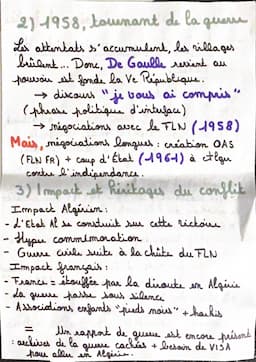 2) 1958, tournant de la guerre
Les attentats s'accumulent, les villages
brûlent... Donc, De Gaulle revient au
pouvoir et fonde la Ve République.
→ discours "je vous ai compris"
(phrase politique d'interlacu)
→ négociations avec le FLN (-1958)
Mais, négociations longues : création OAS
(FLN FR) + coup d'État (-1961-) à Alger
contre l'indépendance.
3) Impact et héritages du conflit
Impact Algérien :
- L'État Al se construit sur cette victoire
- Hyper commémoration
- Guerre civile suite à la chute du FLN
Impact français :
- France = étouffée par la déroute en Algérie
- La guerre passée sous silence
- Associations enfants "pieds noirs" + harkis
=
Un rapport de guerre est encore présent
: archives de la guerre cachées + besoin de VISA
pour aller en Algérie.